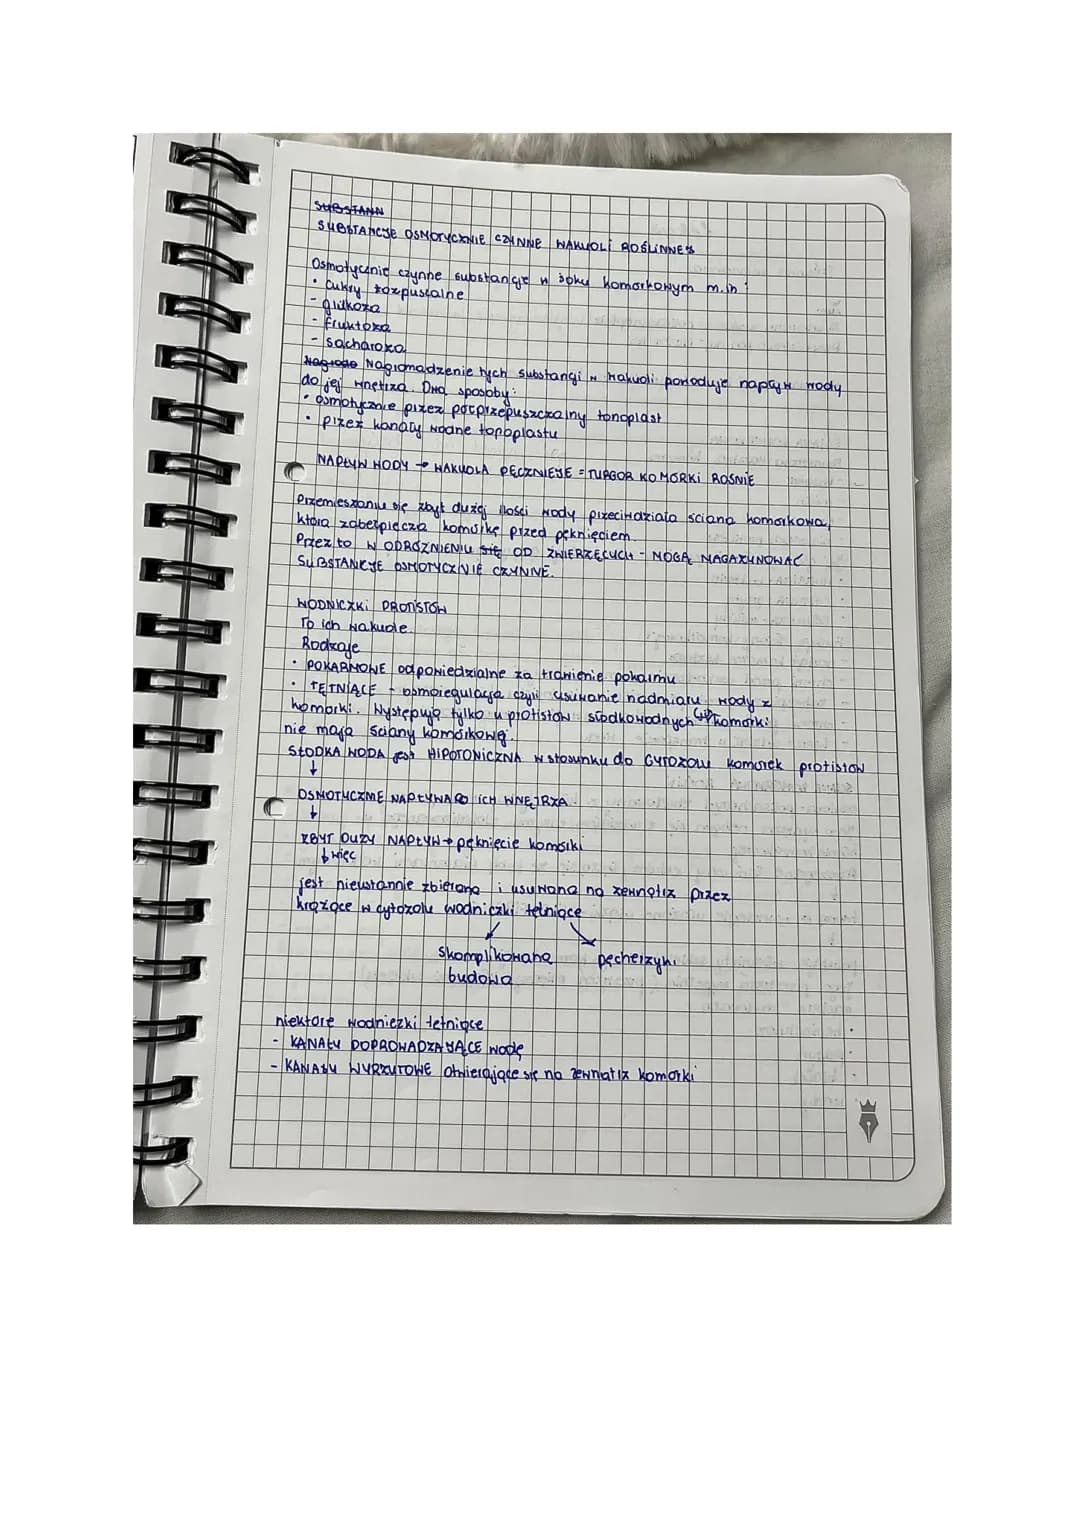 SUBSTANN
SUBSTANCJE OSMOTYCZNIE CZYNNE WAKUOLI ROŚLINNEJ
Osmotycznie czynne substancje w soku komórkowym m.in:
• cukry rozpuszalne
- glukoza
- fruktoza
- sacharoza
Nagrodo Nagromadzenie tych substancji w wakuoli powoduje napływ wody
do jej wnętrza. Dwa sposoby:
• osmotycznie przez półprzepuszczalny tonoplast
• przez kanały wodne tonoplastu
NAPŁYW WODY → WAKUOLA PĘCZNIEJE = TURGOR KOMÓRKI ROŚNIE
Przemieszaniu się zbyt dużej ilości wody przeciwdziała ściana komórkowa,
która zabezpiecza komórkę przed pęknięciem.
Przez to W ODRÓŻNIENIU SIĘ OD ZWIERZĘCYCH - MOGĄ MAGAZYNOWAĆ
SUBSTANCJE OSMOTYCZNIE CZYNNE.
WODNICZKI PROTISTÓW
To ich wakuole.
Rodzaje
• POKARMOWE odpowiedzialne za trawienie pokarmu
• TĘTNIĄCE - osmoregulacja czyli usuwanie nadmiaru wody z
komórki. Występują tylko u protistów słodkowodnych komórki
nie mają ściany komórkowej.
SŁODKA WODA jest HIPOTONICZNA w stosunku do CYTOZOLU komórek protistów
↓
OSMOTYCZNIE NAPŁYWA DO ICH WNĘTRZA
↓
ZBYT DUŻY NAPŁYW → pęknięcie komórki
↓ więc
jest nieustannie zbierana i usuwana na zewnątrz przez
krążące w cytozolu wodniczki tętniące
skomplikowana pęcherzyki
budowa
niektóre wodniczki tętniące
- KANAŁY DOPROWADZAJĄCE wodę
- KANAŁY WYRZUTOWE otwierające się na zewnątrz komórki